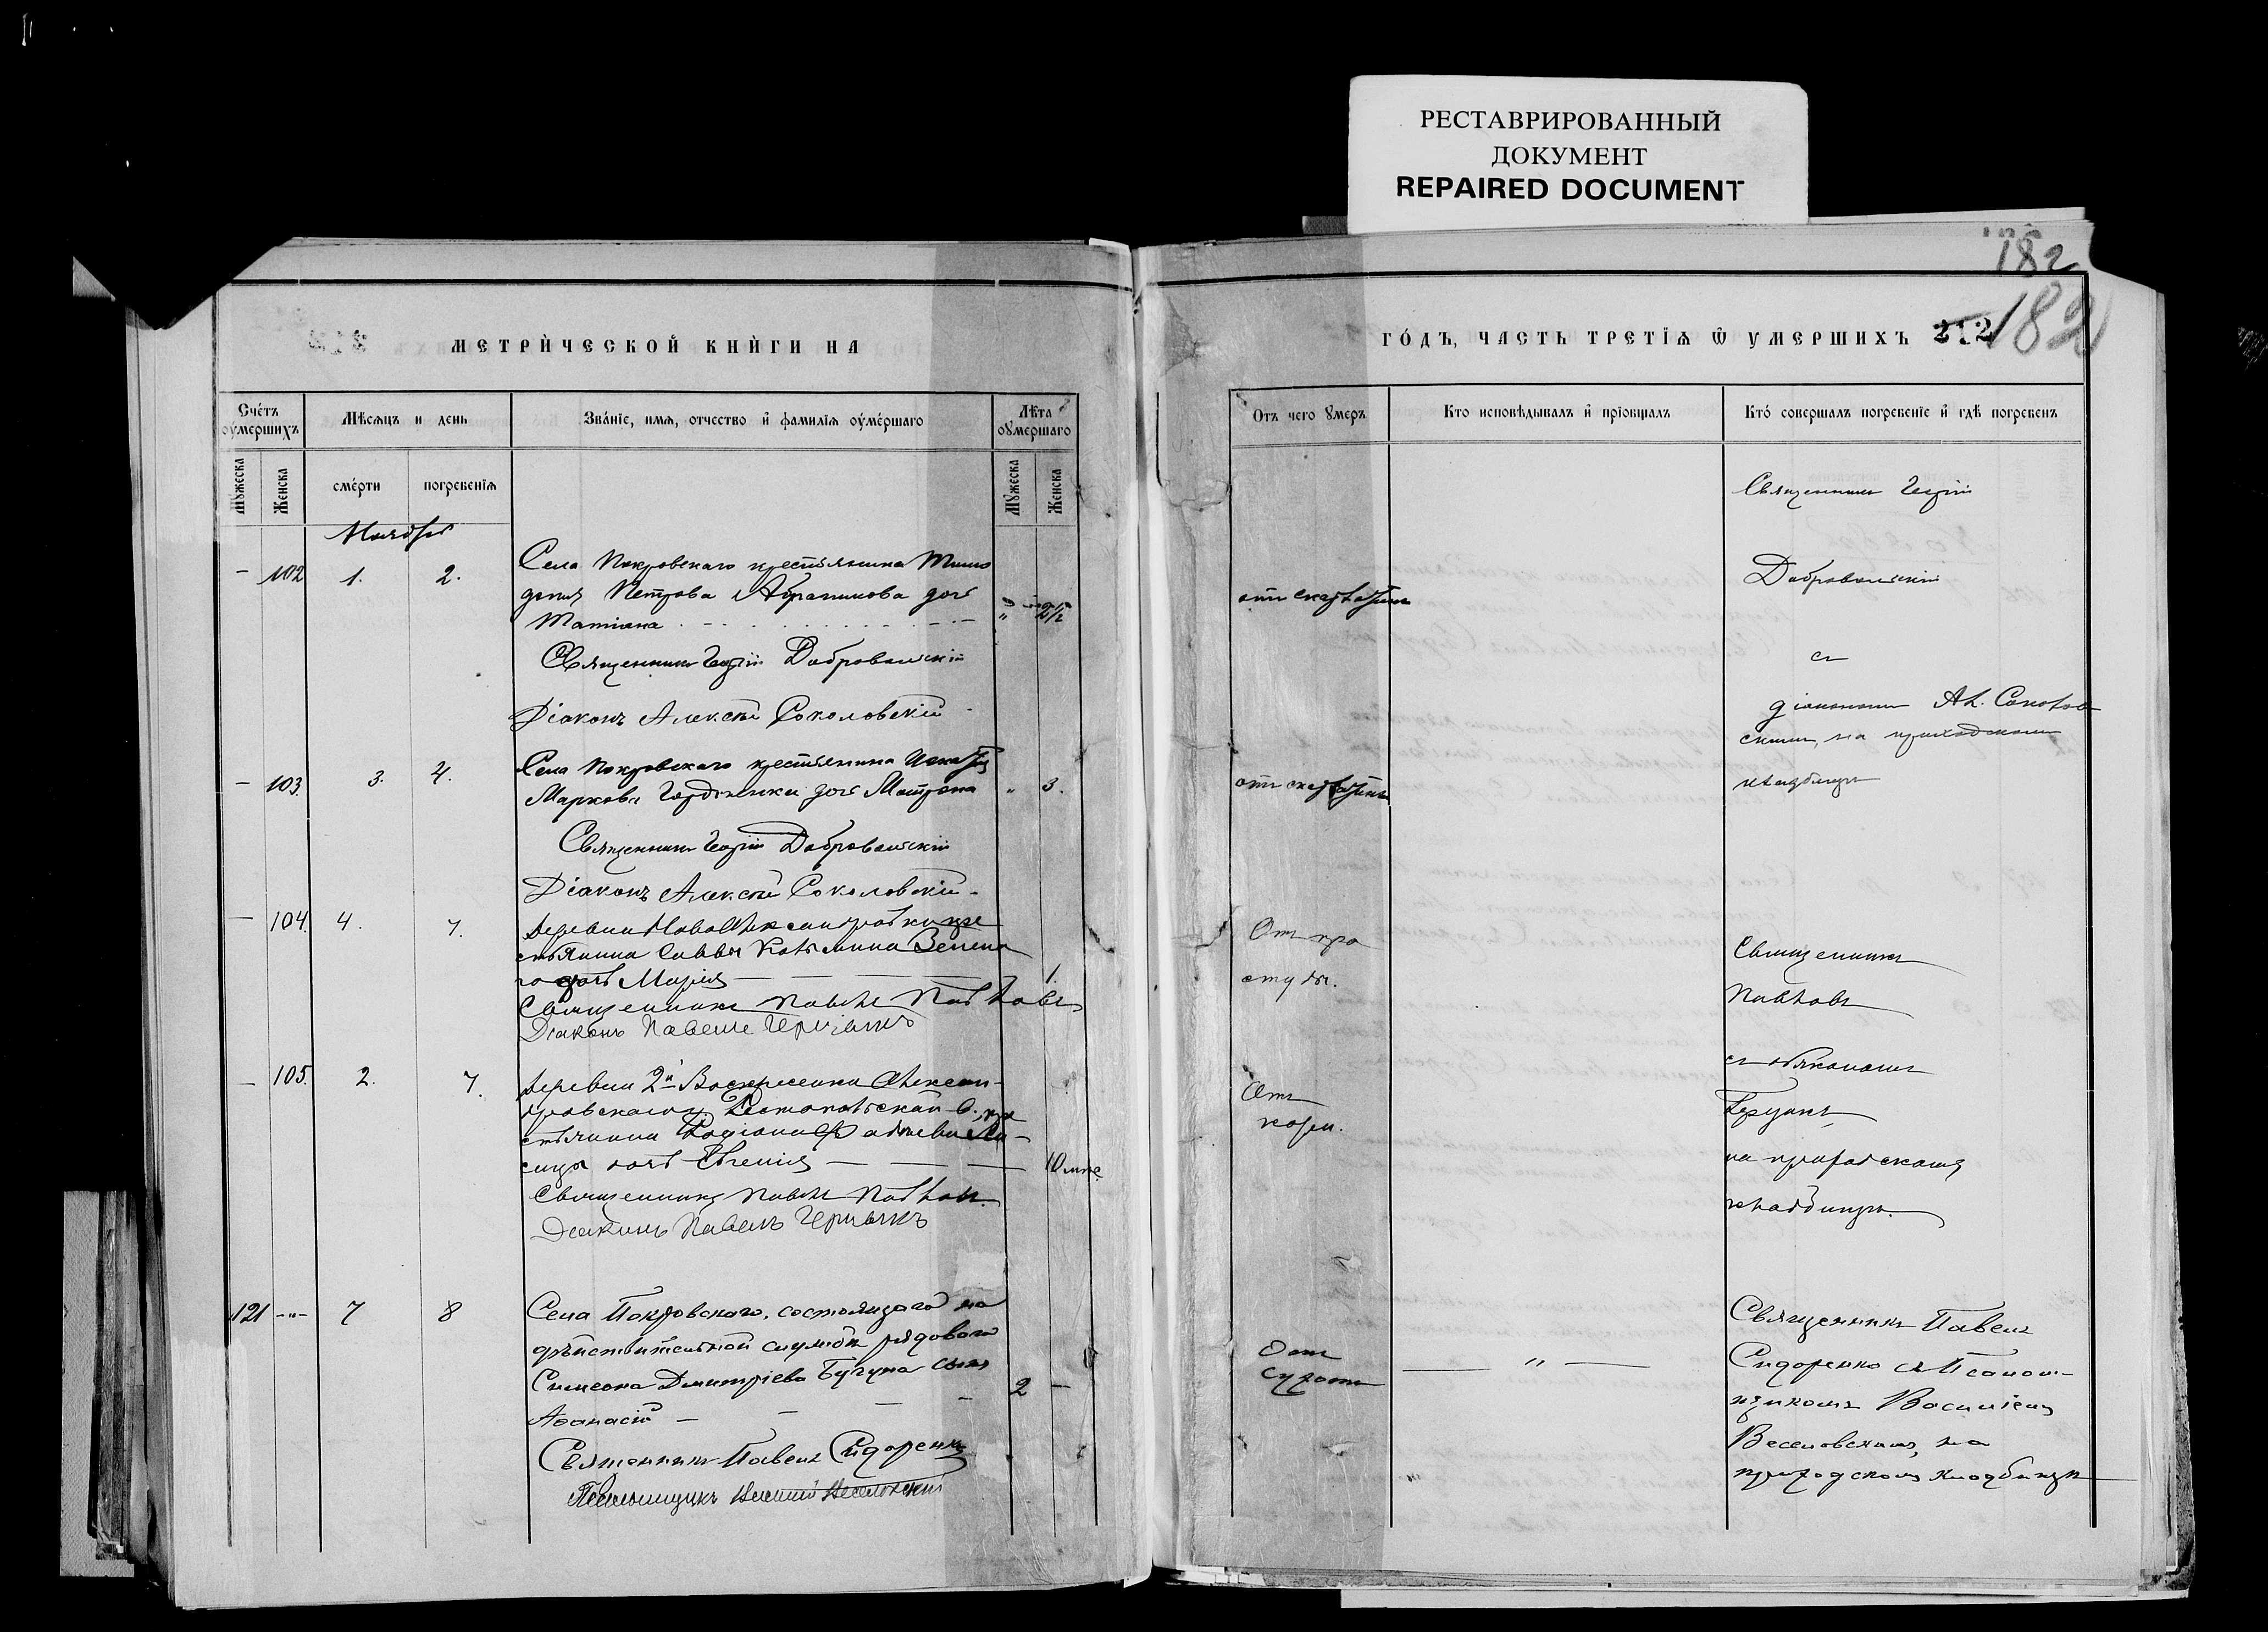 РЕСТАВРИРОВАННЫЙ
ДОКУМЕНТ
REPAIRED DOCUMENT
182
МЕТРИ́ЧЕСКОЙ КНИ́ГИ НА
ГО́ДЪ, ЧАСТЬ ТРЕТІѦ Ѿ УМЕРШИХЪ 212 182
Сче́тъ оумершихъ
Мѣсѧцъ и день
Зва́нїе, имѧ, отчество и фамилїѧ оуме́ршаго
Лѣта оумершаго
Мꙋжеска
Женска
сме́рти
погребенїѧ
Мꙋжеска
Женска
Отъ чего ꙋмеръ
Кто исповѣдывалъ и прїобщалъ
Кто́ совершалъ погребенїе и гдѣ погребенъ
Ноябрь
— 102 1. 2.
Села Покровскаго крестьянина
Петрова Абрамикова дочь
Татіана
" 2½
Священникъ Георгій Добровольскій
Діаконъ Алексѣй Соколовскій
отъ скарлатины
Священникъ Георгій
Добровольскій
съ
діакономъ Ал. Соколов
скимъ, на приходскомъ
кладбищѣ
— 103. 3. 4.
Села Покровскаго крестьянина
Маркова дочь Матрона
" 3.
Священникъ Георгій Добровольскій
Діаконъ Алексѣй Соколовскій
отъ скарлатины
— 104. 4. 7.
Деревни НовоАлександровки кре
стьянина Саввы
го дочь Марія
1.
Священникъ Павелъ Павловъ
Діаконъ Павелъ
Отъ про
студы.
Священникъ
Павловъ
съ діакономъ
на приходскомъ
кладбищѣ.
— 105. 2. 7.
Деревни 2й Воскресенки Алексан-
дровскаго у. в., кре
стьянина Родіона
дочь Евгенія
10 мѣс.
Священникъ Павелъ Павловъ.
Діаконъ Павелъ
Отъ
кори.
121 —"— 7 8
Села Покровскаго, состоящаго на
дѣйствительной службѣ рядового
Симеона Дмитріева Бугуна сынъ
Аѳанасій
2 —
Священникъ Павелъ Сидоренко
Псаломщикъ Василій Веселовскій
Отъ
сухотъ
— " —
Священникъ Павелъ
Сидоренко съ Псалом-
щикомъ Василіемъ
Веселовскимъ, на
приходскомъ кладбищѣ